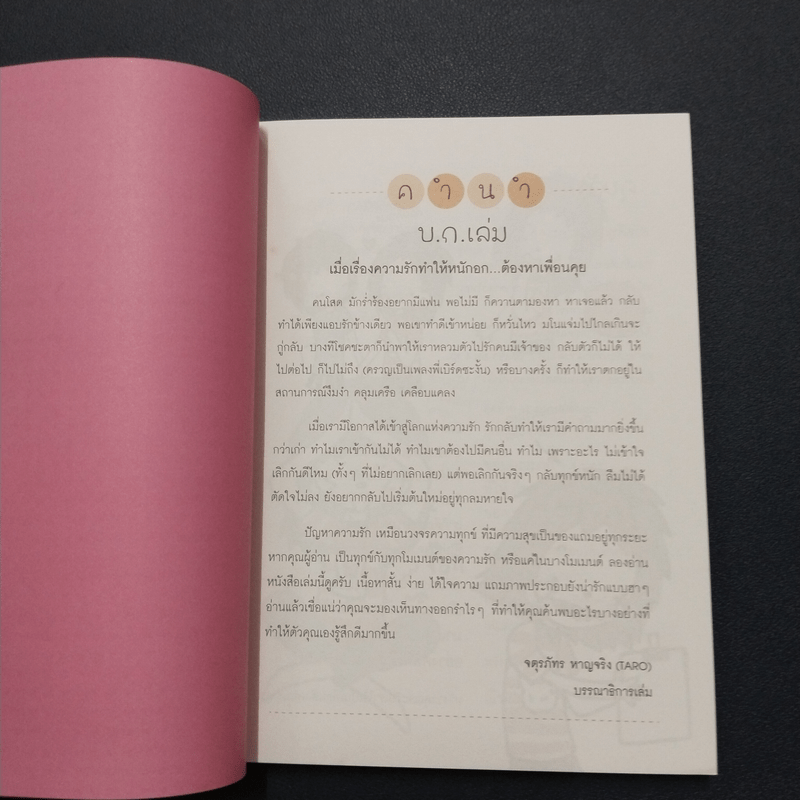 คำนำ
บ.ก.เล่ม
เมื่อเรื่องความรักทำให้หนักอก...ต้องหาเพื่อนคุย
คนโสด มักร่ำร้องอยากมีแฟน พอไม่มี ก็ควานตามองหา หาเจอแล้ว กลับ
ทำได้เพียงแอบรักข้างเดียว พอเขาทำดีเข้าหน่อย ก็หวั่นไหว มโนแจ่มไปไกลเกินจะ
กู่กลับ บางทีโชคชะตาก็นำพาให้เราหลวมตัวไปรักคนมีเจ้าของ กลับตัวก็ไม่ได้ ให้
ไปต่อไป ก็ไปไม่ถึง (ครวญเป็นเพลงพี่เบิร์ดซะงั้น) หรือบางครั้ง ก็ทำให้เราตกอยู่ใน
สถานการณ์งึมงำ คลุมเครือ เคลือบแคลง
เมื่อเรามีโอกาสได้เข้าสู่โลกแห่งความรัก รักกลับทำให้เรามีคำถามมากยิ่งขึ้น
กว่าเก่า ทำไมเราเข้ากันไม่ได้ ทำไมเขาต้องไปมีคนอื่น ทำไม เพราะอะไร ไม่เข้าใจ
เลิกกันดีไหม (ทั้งๆ ที่ไม่อยากเลิกเลย) แต่พอเลิกกันจริงๆ กลับทุกข์หนัก ลืมไม่ได้
ตัดใจไม่ลง ยังอยากกลับไปเริ่มต้นใหม่อยู่ทุกลมหายใจ
ปัญหาความรัก เหมือนวงจรความทุกข์ ที่มีความสุขเป็นของแถมอยู่ทุกระยะ
หากคุณผู้อ่าน เป็นทุกข์กับทุกโมเมนต์ของความรัก หรือแค่ในบางโมเมนต์ ลองอ่าน
หนังสือเล่มนี้ดูครับ เนื้อหาสั้น ง่าย ได้ใจความ แถมภาพประกอบยังน่ารักแบบฮาๆ
อ่านแล้วเชื่อแน่ว่าคุณจะมองเห็นทางออกรำไรๆ ที่ทำให้คุณค้นพบอะไรบางอย่างที่
ทำให้ตัวคุณเองรู้สึกดีมากขึ้น
จตุรภัทร หาญจริง (TARO)
บรรณาธิการเล่ม